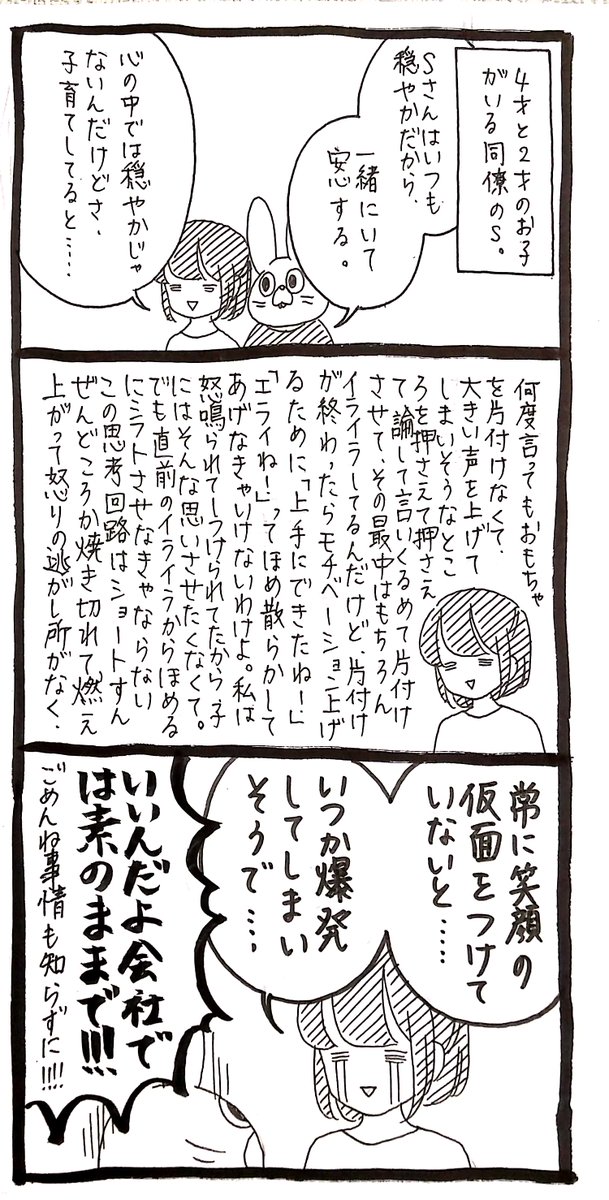 4才と2才のお子
がいる同僚のS。
Sさんはいつも
穏やかだから、
一緒にいて
安心する。
心の中では穏やかじゃ
ないんだけどさ、
子育てしてると…
何度言ってもおもちゃ
を片付けなくて、
大きい声を上げて
しまいそうなとこ
ろを押さえて押さえ
て諭して言いくるめて片付け
させて、その最中はもちろん
イライラしてるんだけど、片付け
が終わったらモチベーション上げ
るために「上手にできたねー!」
「エライねー!」ってほめ散らかして
あげなきゃいけないわけよ。私は
怒鳴られてしつけられてたから子
にはそんな思いさせたくなくて。
でも直前のイライラからほめる
にシフトさせなきゃならない
この思考回路はショートすん
ぜんどころか焼き切れて燃え
上がって怒りの逃がし所がなく、
常に笑顔の
仮面をつけて
いないと……
いつか爆発
してしまい
そうで…、
いいんだよ会社で
は素のままで!!!
ごめんね事情も知らずに!!!!